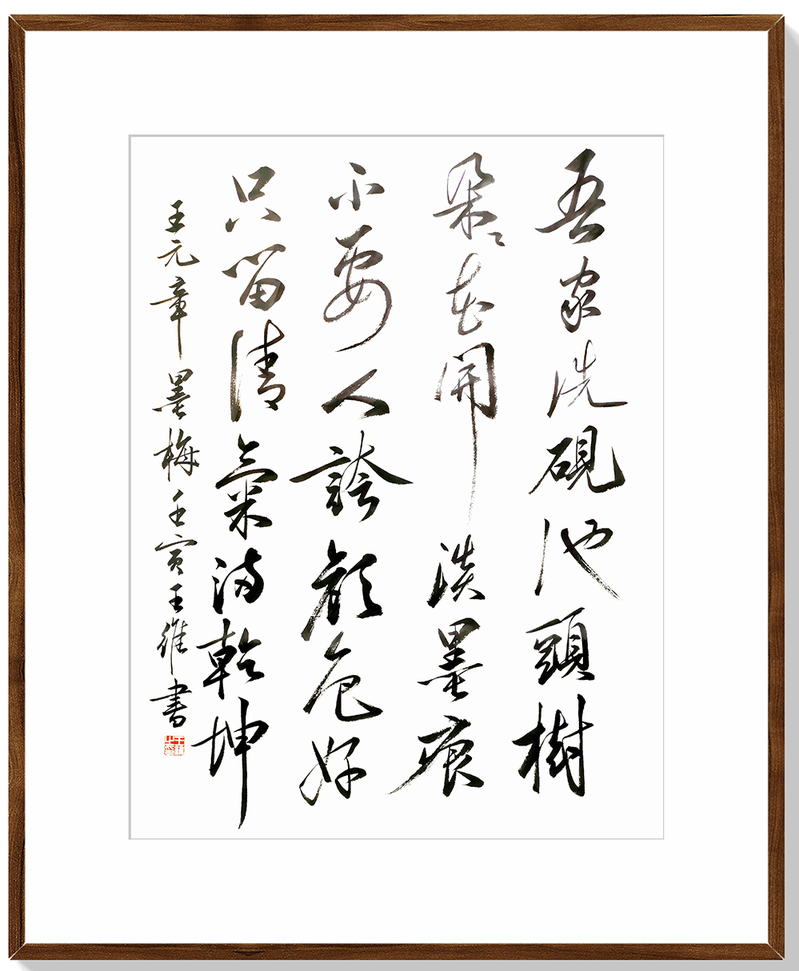 吾家洗硯池頭樹
朵々花開淡墨痕
不要人誇顏色好
只留清氣滿乾坤
王元章墨梅壬寅王維書